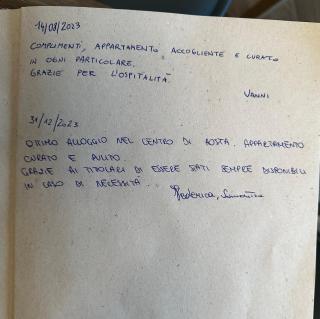 14/08/2023
COMPLIMENTI, APPARTAMENTO ACCOGLIENTE E CURATO
IN OGNI PARTICOLARE.
GRAZIE PER L'OSPITALITÀ
VANNI
31/12/2023
OTTIMO ALLOGGIO NEL CENTRO DI AOSTA. APPARTAMENTO
CURATO E PULITO.
GRAZIE AI TITOLARI DI ESSERE STATI SEMPRE DISPONIBILI
IN CASO DI NECESSITÀ...
Federica,